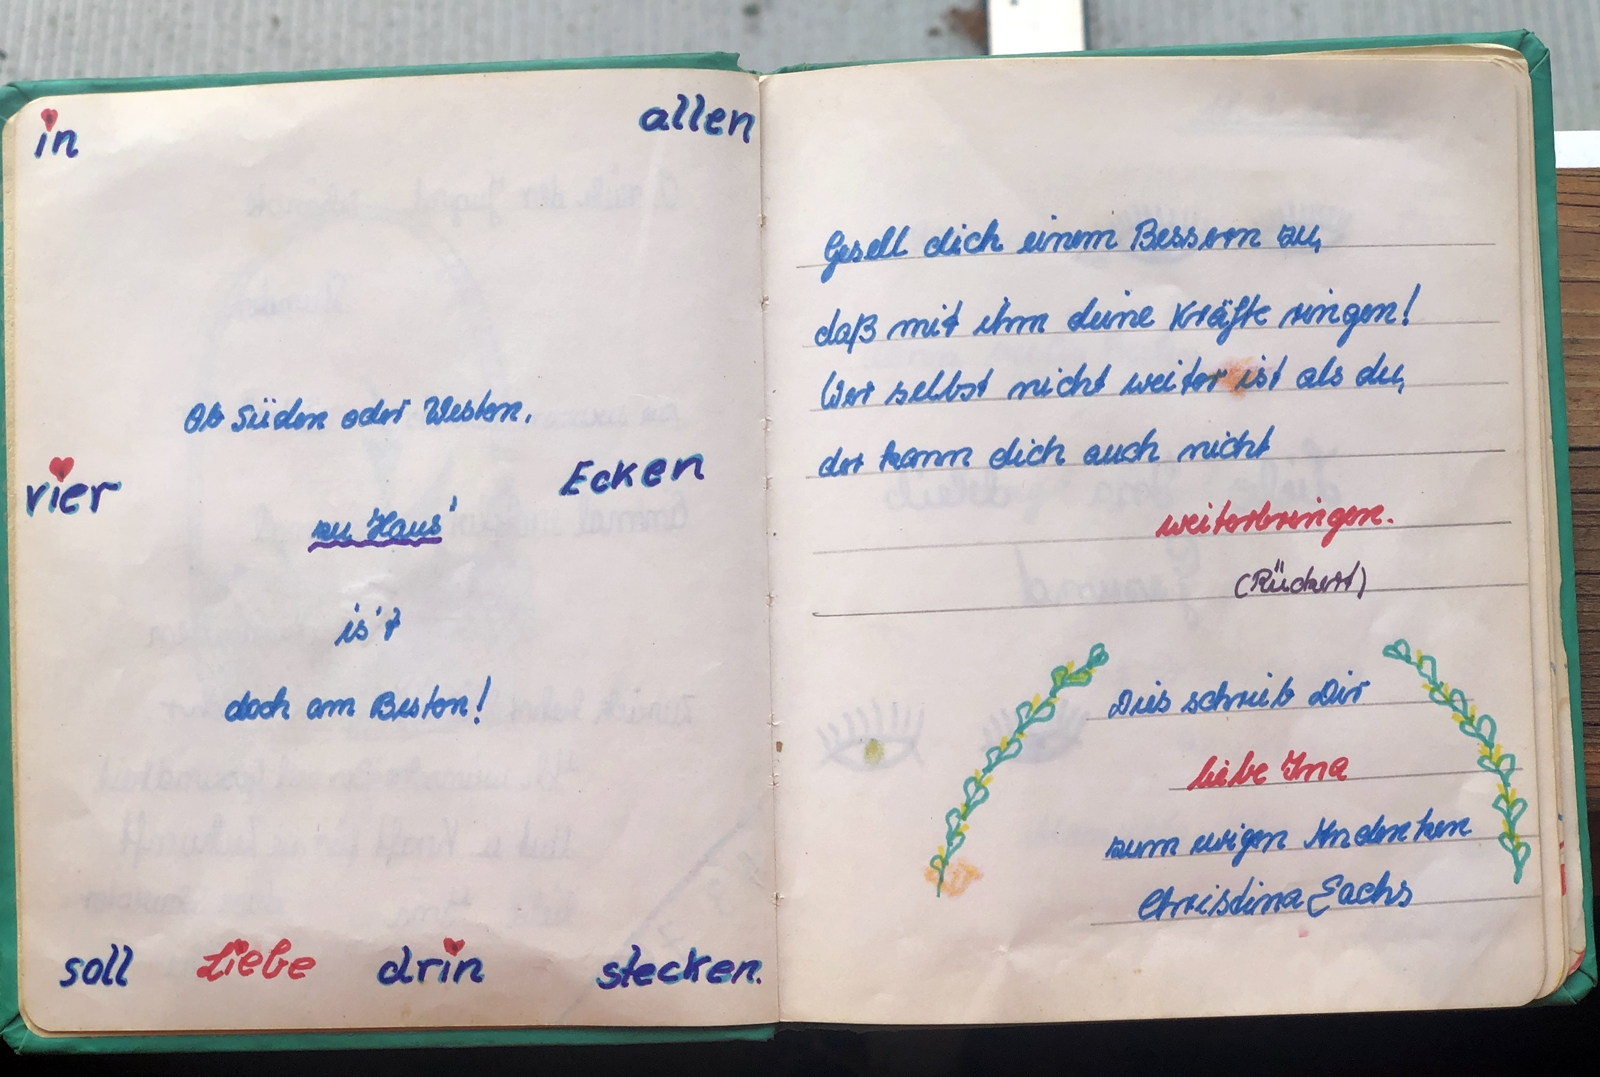 in allen
Ob Süden oder Westen,
vier Ecken
zu Haus'
is't
doch am Besten!
soll Liebe drin stecken.
Gesell dich einem Bessern zu,
daß mit ihm deine Kräfte ringen!
Wer selbst nicht weiter ist als du,
der kann dich auch nicht
weiterbringen.
(Rückert)
Dies schrieb Dir
liebe Ina
zum ewigen Andenken
Christina Sachs